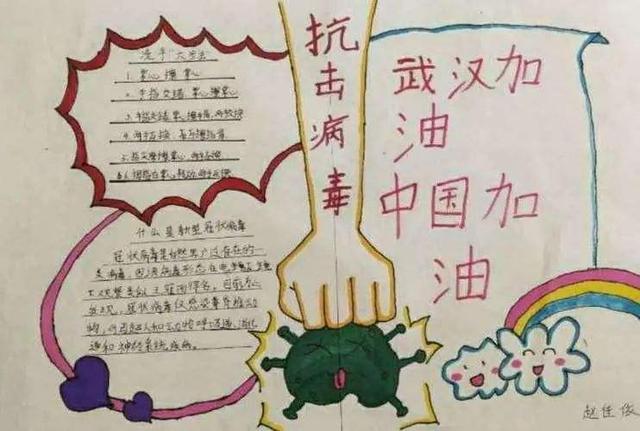 洗手"六步法"
1. 掌心擦掌心
2. 手指交错,掌心擦掌心
3. 手指交错,掌心擦手背,两手交换
4. 两手互握,互擦指背
5. 指尖摩擦掌心,两手互换
6. 拇指在掌心转动,两手互换
什么是新型冠状病毒
冠状病毒是自然界广泛存在的
类病毒,因该病毒形态在电镜下
观察类似王冠而得名。目前为止
发现,冠状病毒仅感染脊椎动
物,可引起人和动物呼吸道、消化
道和神经系统疾病。
抗击病毒
武汉加
油
中国加
油
赵佳俊